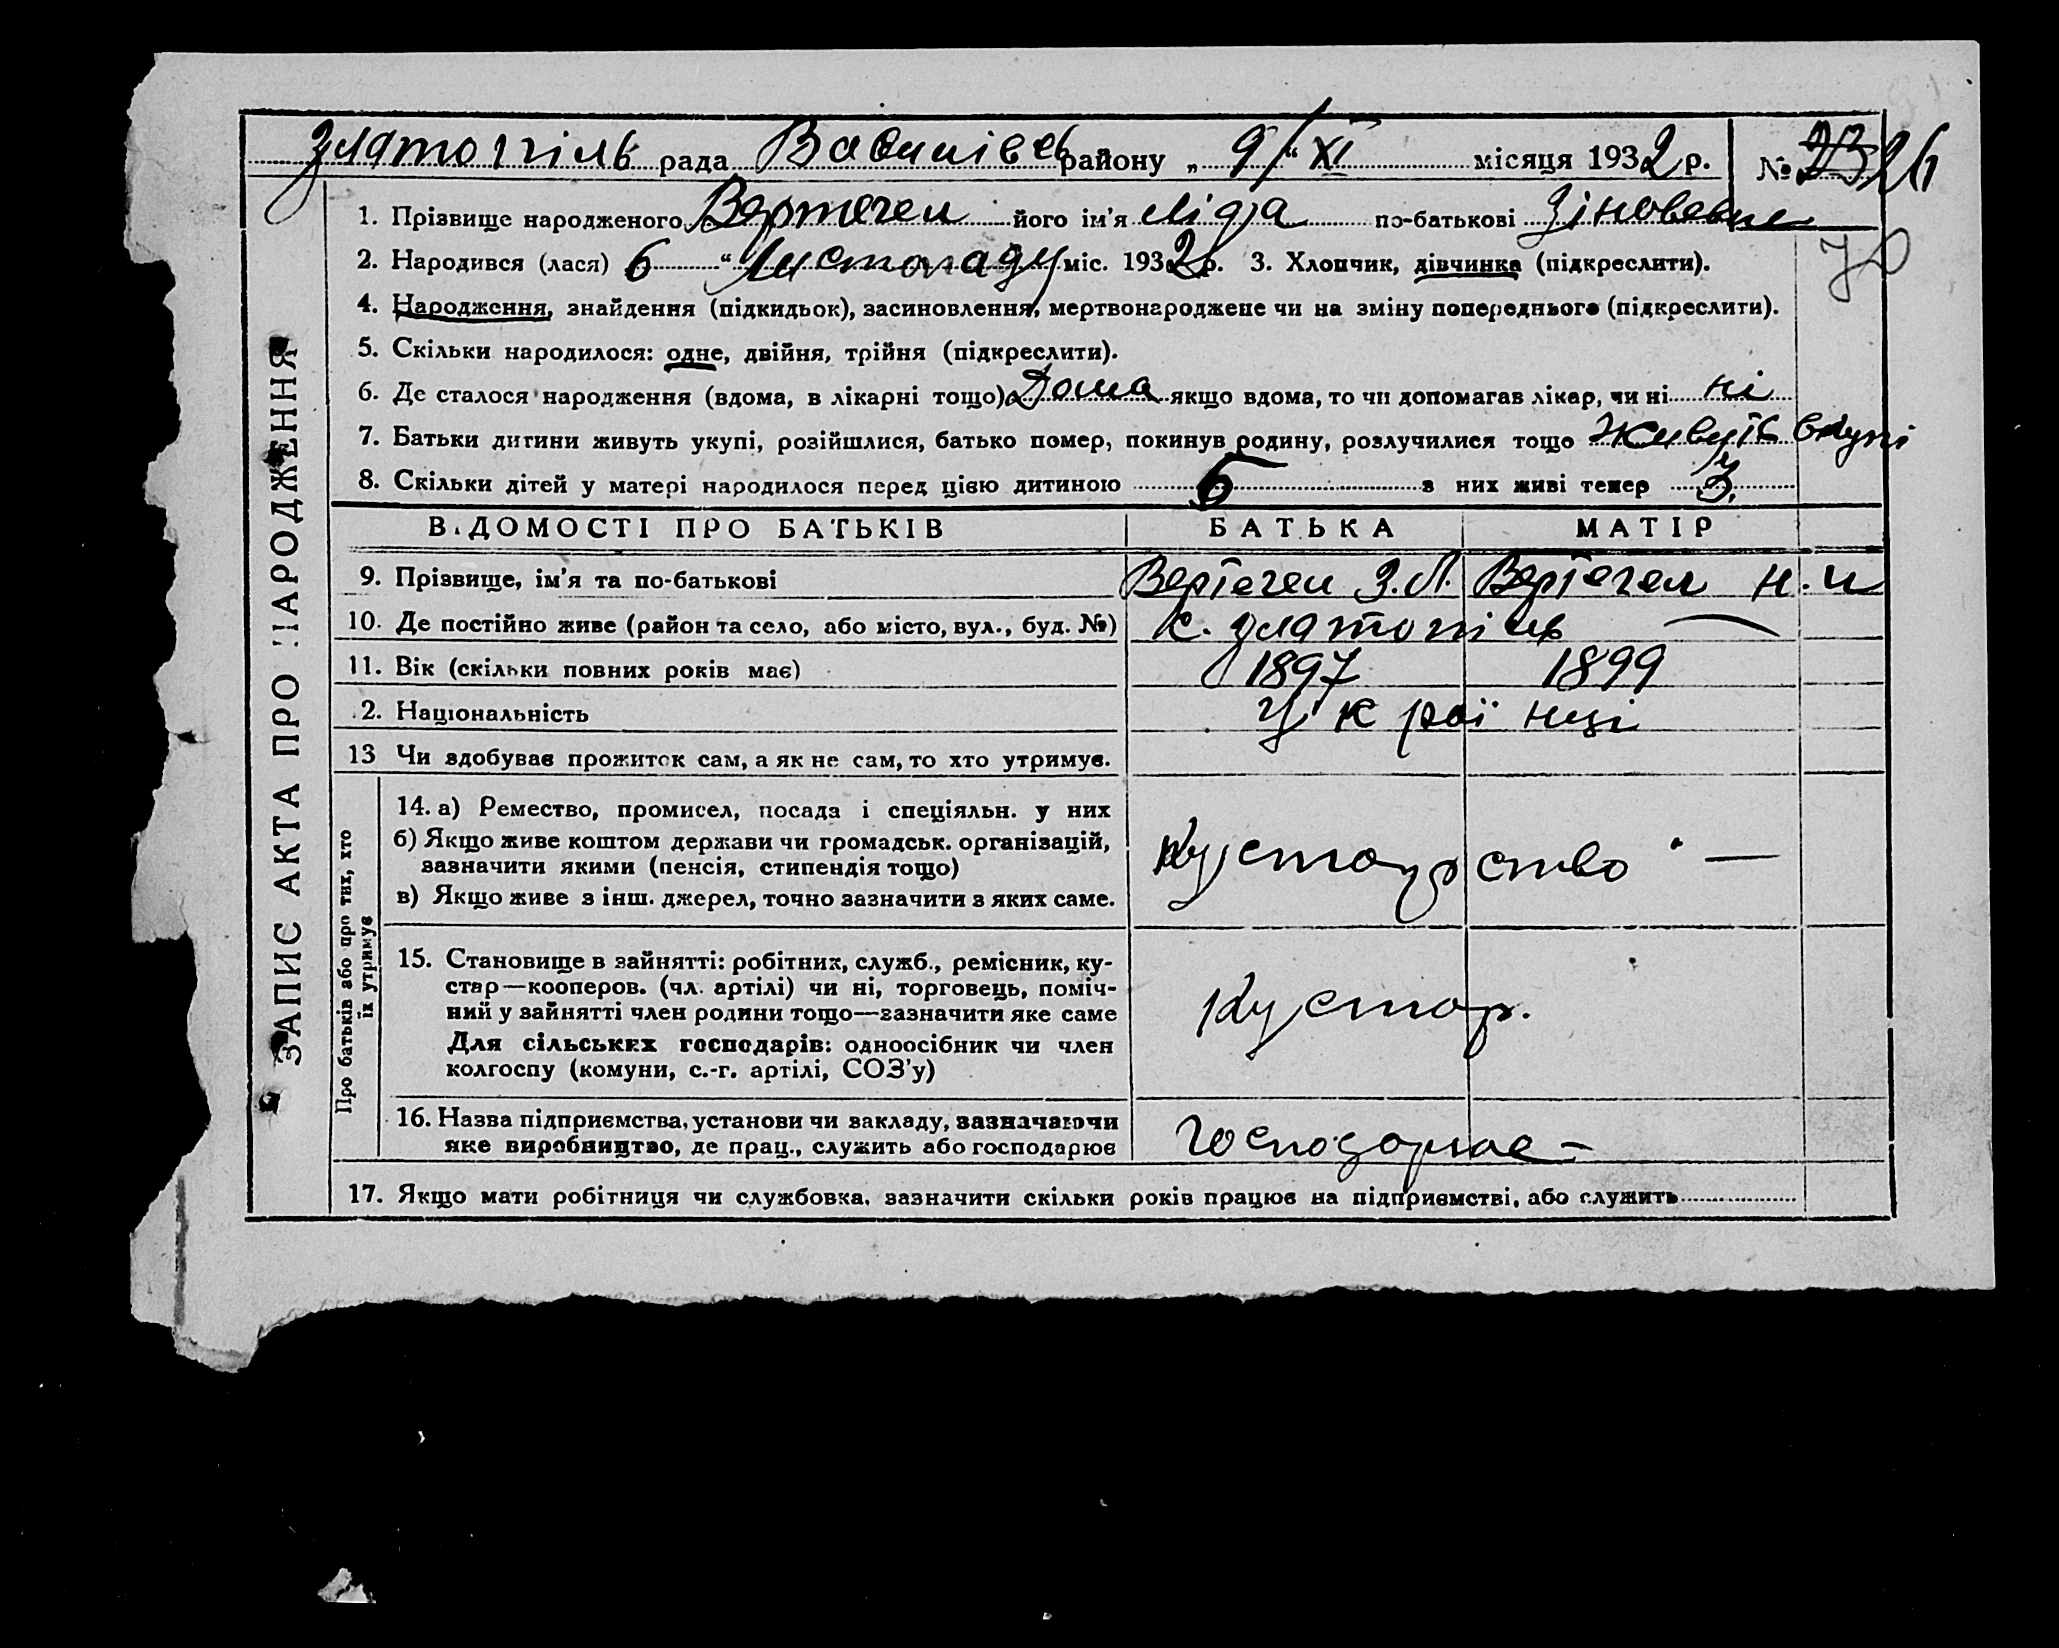 Златопіль рада Васиɴівсь району „ 9/“ XI місяця 1932 р. № 26
1. Прізвище народженого Вертегел його ім'я Лідя по-батькові Зіновевне
2. Народився (лася) 6 “ Листопаду міс. 1932 р. 3. Хлопчик, дівчинка (підкреслити).
4. Народження, знайдення (підкидьок), засиновлення, мертвонароджене чи на зміну попереднього (підкреслити).
5. Скільки народилося: одне, двійня, трійня (підкреслити).
6. Де сталося народження (вдома, в лікарні тощо) Дома якщо вдома, то чи допомагав лікар, чи ні ні
7. Батьки дитини живуть укупі, розійшлися, батько помер, покинув родину, розлучилися тощо Живуть вкупі
8. Скільки дітей у матері народилося перед цією дитиною 5 з них живі тепер 3
ВІДОМОСТІ ПРО БАТЬКІВ БАТЬКА МАТІР
9. Прізвище, ім'я та по-батькові Вертегел З. Л. Вертегел Н. И
10. Де постійно живе (район та село, або місто, вул., буд. №) с. Златопіль —
11. Вік (скільки повних років має) 1897 1899
12. Національність Українці
13 Чи здобував прожиток сам, а як не сам, то хто утримує.
14. а) Ремество, промисел, посада і спеціяльн. у них
б) Якщо живе коштом держави чи громадськ. організацій,
зазначити якими (пенсія, стипендія тощо)
в) Якщо живе з інш. джерел, точно зазначити з яких саме.
Кустарство —
15. Становище в зайнятті: робітник, служб., ремісник, ку-
стар—кооперов. (чл. артілі) чи ні, торговець, поміч-
ний у зайнятті член родини тощо—зазначити яке саме
Для сільських господарів: одноосібник чи член
колгоспу (комуни, с.-г. артілі, СОЗ'у)
Кустар.
16. Назва підприємства, установи чи закладу, зазначаючи
яке виробництво, де прац., служить або господарює
Господорює –
17. Якщо мати робітниця чи службовка, зазначити скільки років працює на підприємстві, або служить
ЗАПИС АКТА ПРО НАРОДЖЕННЯ
Про батьків або про тих, хто
їх утримує